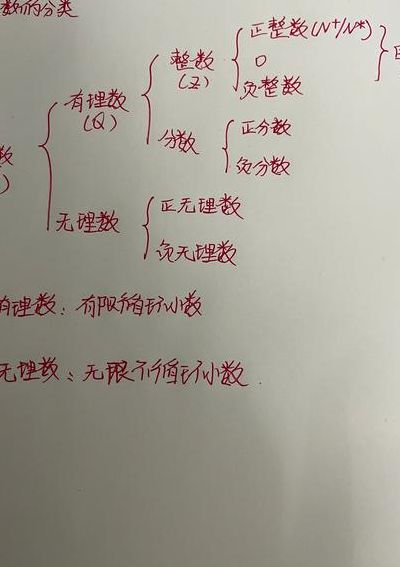 数的分类
正整数(N⁺/N*)
整数
(Z)
0
负整数
有理数
(Q)
分数
正分数
负分数
数
无理数
正无理数
负无理数
有理数：有限循环小数
无理数：无限不循环小数.